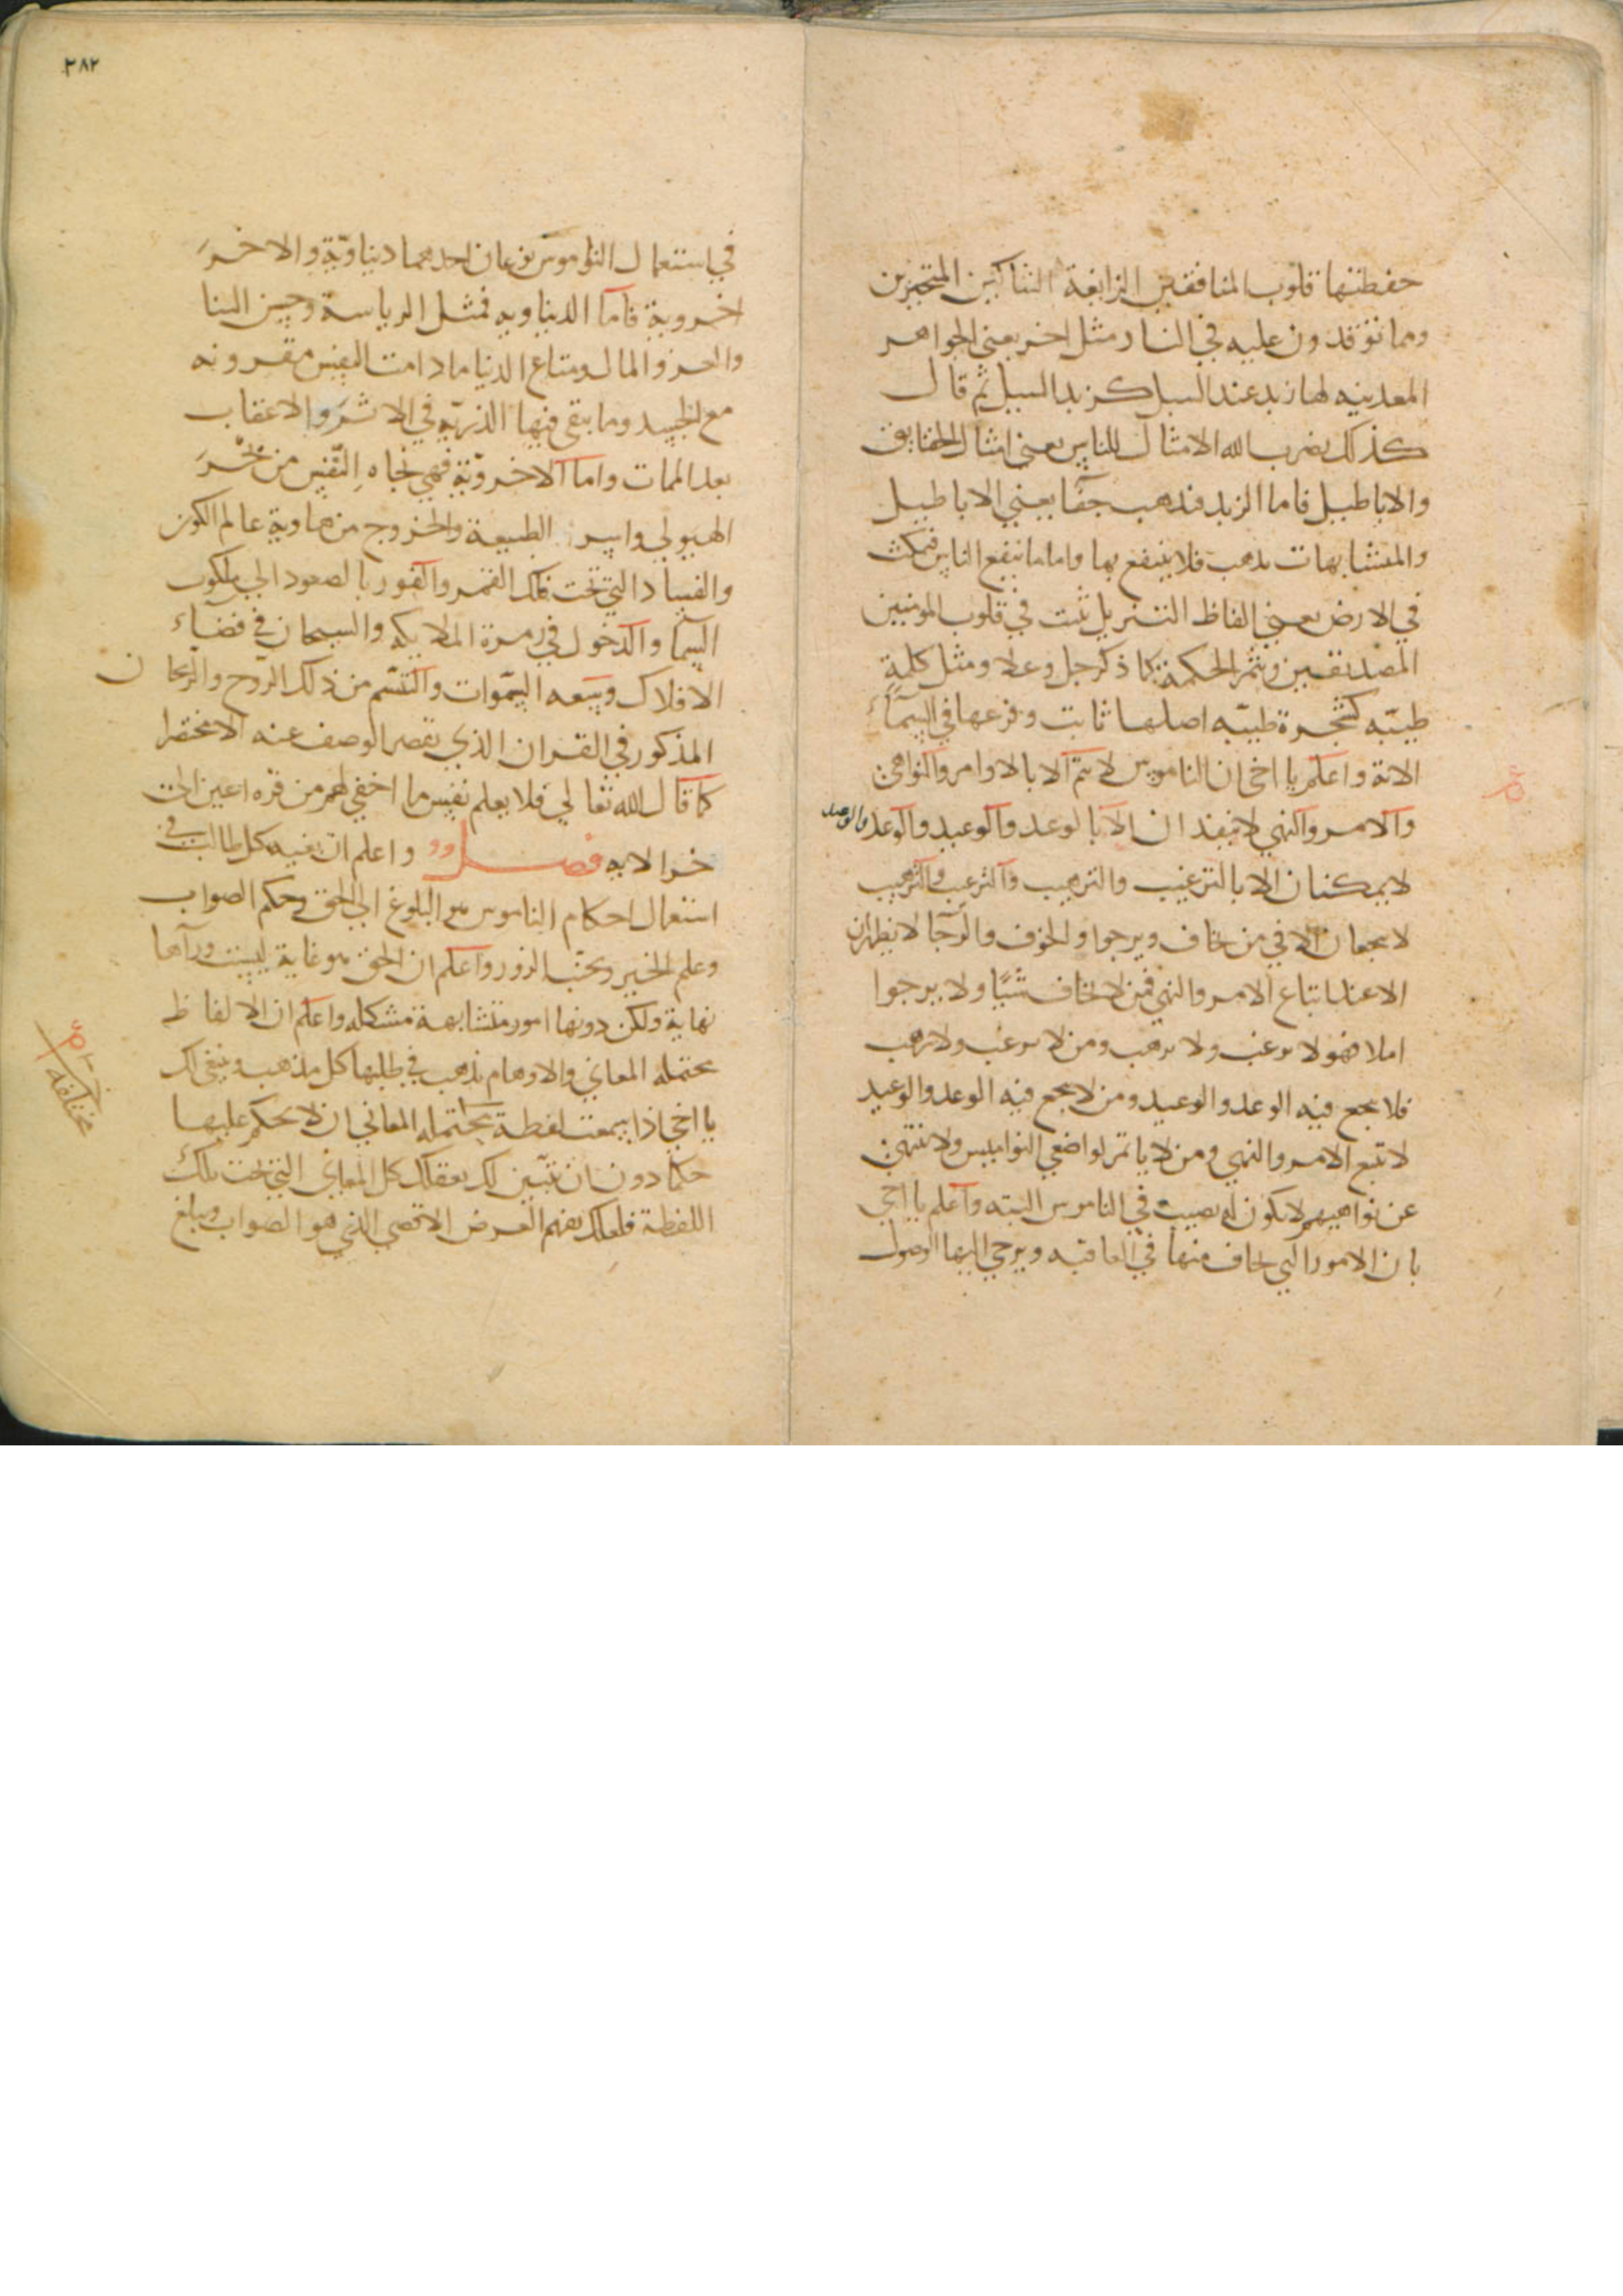 حفظتها قلوب المنافقين الزايغة الشاكين المتحيزين
ومما توقدون عليه في النار مثل اخر يعني الجواهر
المعدنيه لها زبد عند السبك كزبد السيل ثم قال
كذلك يضرب الله الامثال للناس يعني امثال الحقايق
والاباطيل فاما الزبد فيذهب جفآ يعني الاباطيل
والمتشابهات يذهب فلا ينتفع بها واما ما ينفع الناس فيمكث
في الارض يعني الفاظ التنزيل تثبت في قلوب المومنين
المصدقين ويثمر الحكمة كما ذكر جل وعلا ومثل كلمة
طيبّه كشجرة طيبّه اصلها ثابت وفرعها في السمآء
الاية واعلم يا اخي ان الناموس لا يتم الا بالاوامر والنواهي
والامر والنهي لا ينفذان الا بالوعد والوعيد والوعد والوعيد
لا يمكنان الا بالترغيب والترهيب والترغيب والترهيب
لا ينجعان الا في من يخاف ويرجوا والخوف والرجآ لا يظهران
الا عند اتباع الامر والنهي فمن لا يخاف شيًا ولا يرجوا
املا فهو لا يرغب ولا يرهب ومن لا يرغب ولا يرهب
فلا ينجع فيه الوعد والوعيد ومن لا ينجع فيه الوعد والوعيد
لا يتبع الامر والنهي ومن لا ياتمر لواضعي النواميس ولا ينتهي
عن نواهيهم لا يكون له نصيب في الناموس البته واعلم يا اخي
بان الامور التي يخاف منها في العاقبه ويرجي اليها الوصول
٣٨٢
في استعمال الناموس نوعان احدهما دنياويّة والاخرَ
اخروية فاما الدنياويه فمثل الرياسة وحسن الثنا
والعز والمال ومتاع الدنيا ما دامت النفس مقرونه
مع الجسد وما يبقي فيها الذريّه في الاثر والاعقاب
بعد الممات واما الاخرويّة فهي نجاه النّفس من بحْرَ
الهيولي واسر الطبيعة والخروج من هاوية عالم الكون
والفساد التي تحت فلك القمر والفوز بالصعود الي ملكوت
السمآ والدخول في زمرة الملايكه والسيحان في فضآء
الافلاك وسَعه السمّوات والتنسّم من ذلك الرّوح والرّيحان
المذكور في القران الذي يقصر الوصف عنه الا مختصرا
كما قال الله تعالي فلا يعلم نفس ما اخفي لهم من قره اعين الي
اخر الايه فصل واعلم ان بغيه كل طالب في
استعمال احكام الناموس هو البلوغ الي الحق وحكم الصواب
وعلم الخير وتجنّب الزور واعلم ان الحق هو غاية ليست ورآها
نهاية ولكن دونها امور متشابهة مشكله واعلم ان الالفاظ
محتمله المعاني والاوهام يذهب في طلبها كل مذهب وينبغي لك
يا اخي اذا سمعت لفظة محتمله المعاني ان لا تحكم عليها
حكما دون ان تتبّين لك بعقلك كل المعاني التي تحت تلك
اللفظة فلعلك تفهم الغرض الاقصي الذي هو الصواب ويبلغ